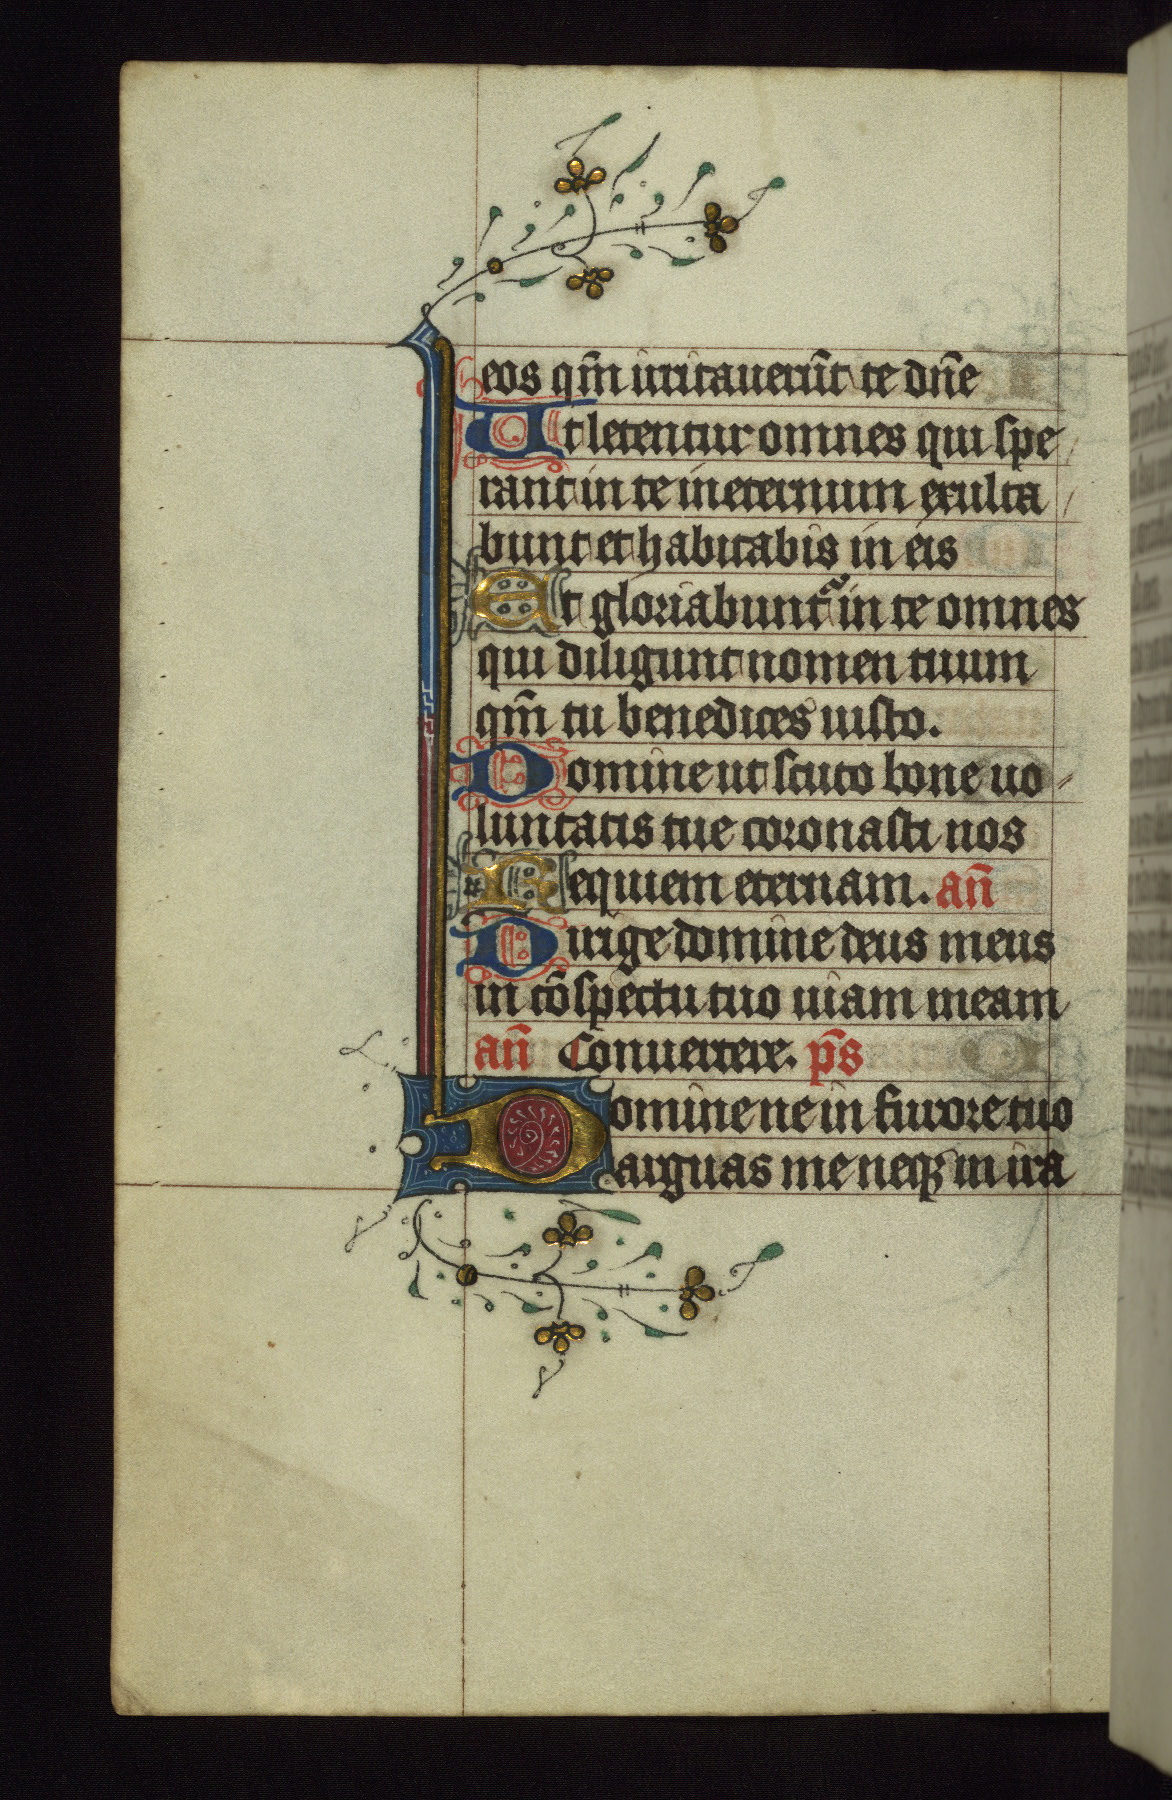 eos qm̄ irritauerūt te dn̄e
Ut letentur omnes qui spe
rant in te in eternum exulta
bunt et habitabis in eis
Et gloriabuntᷣ in te omnes
qui diligunt nomen tuum
qm̄ tu benedices iusto.
Domine ut scuto bone uo
luntatis tue coronasti nos
Requiem eternam. an̄
Dirige domine deus meus
in cōspectu tuo uiam meam
an̄ Conuertere. ps̄
Domine ne in furore tuo
arguas me neqꝫ in ira